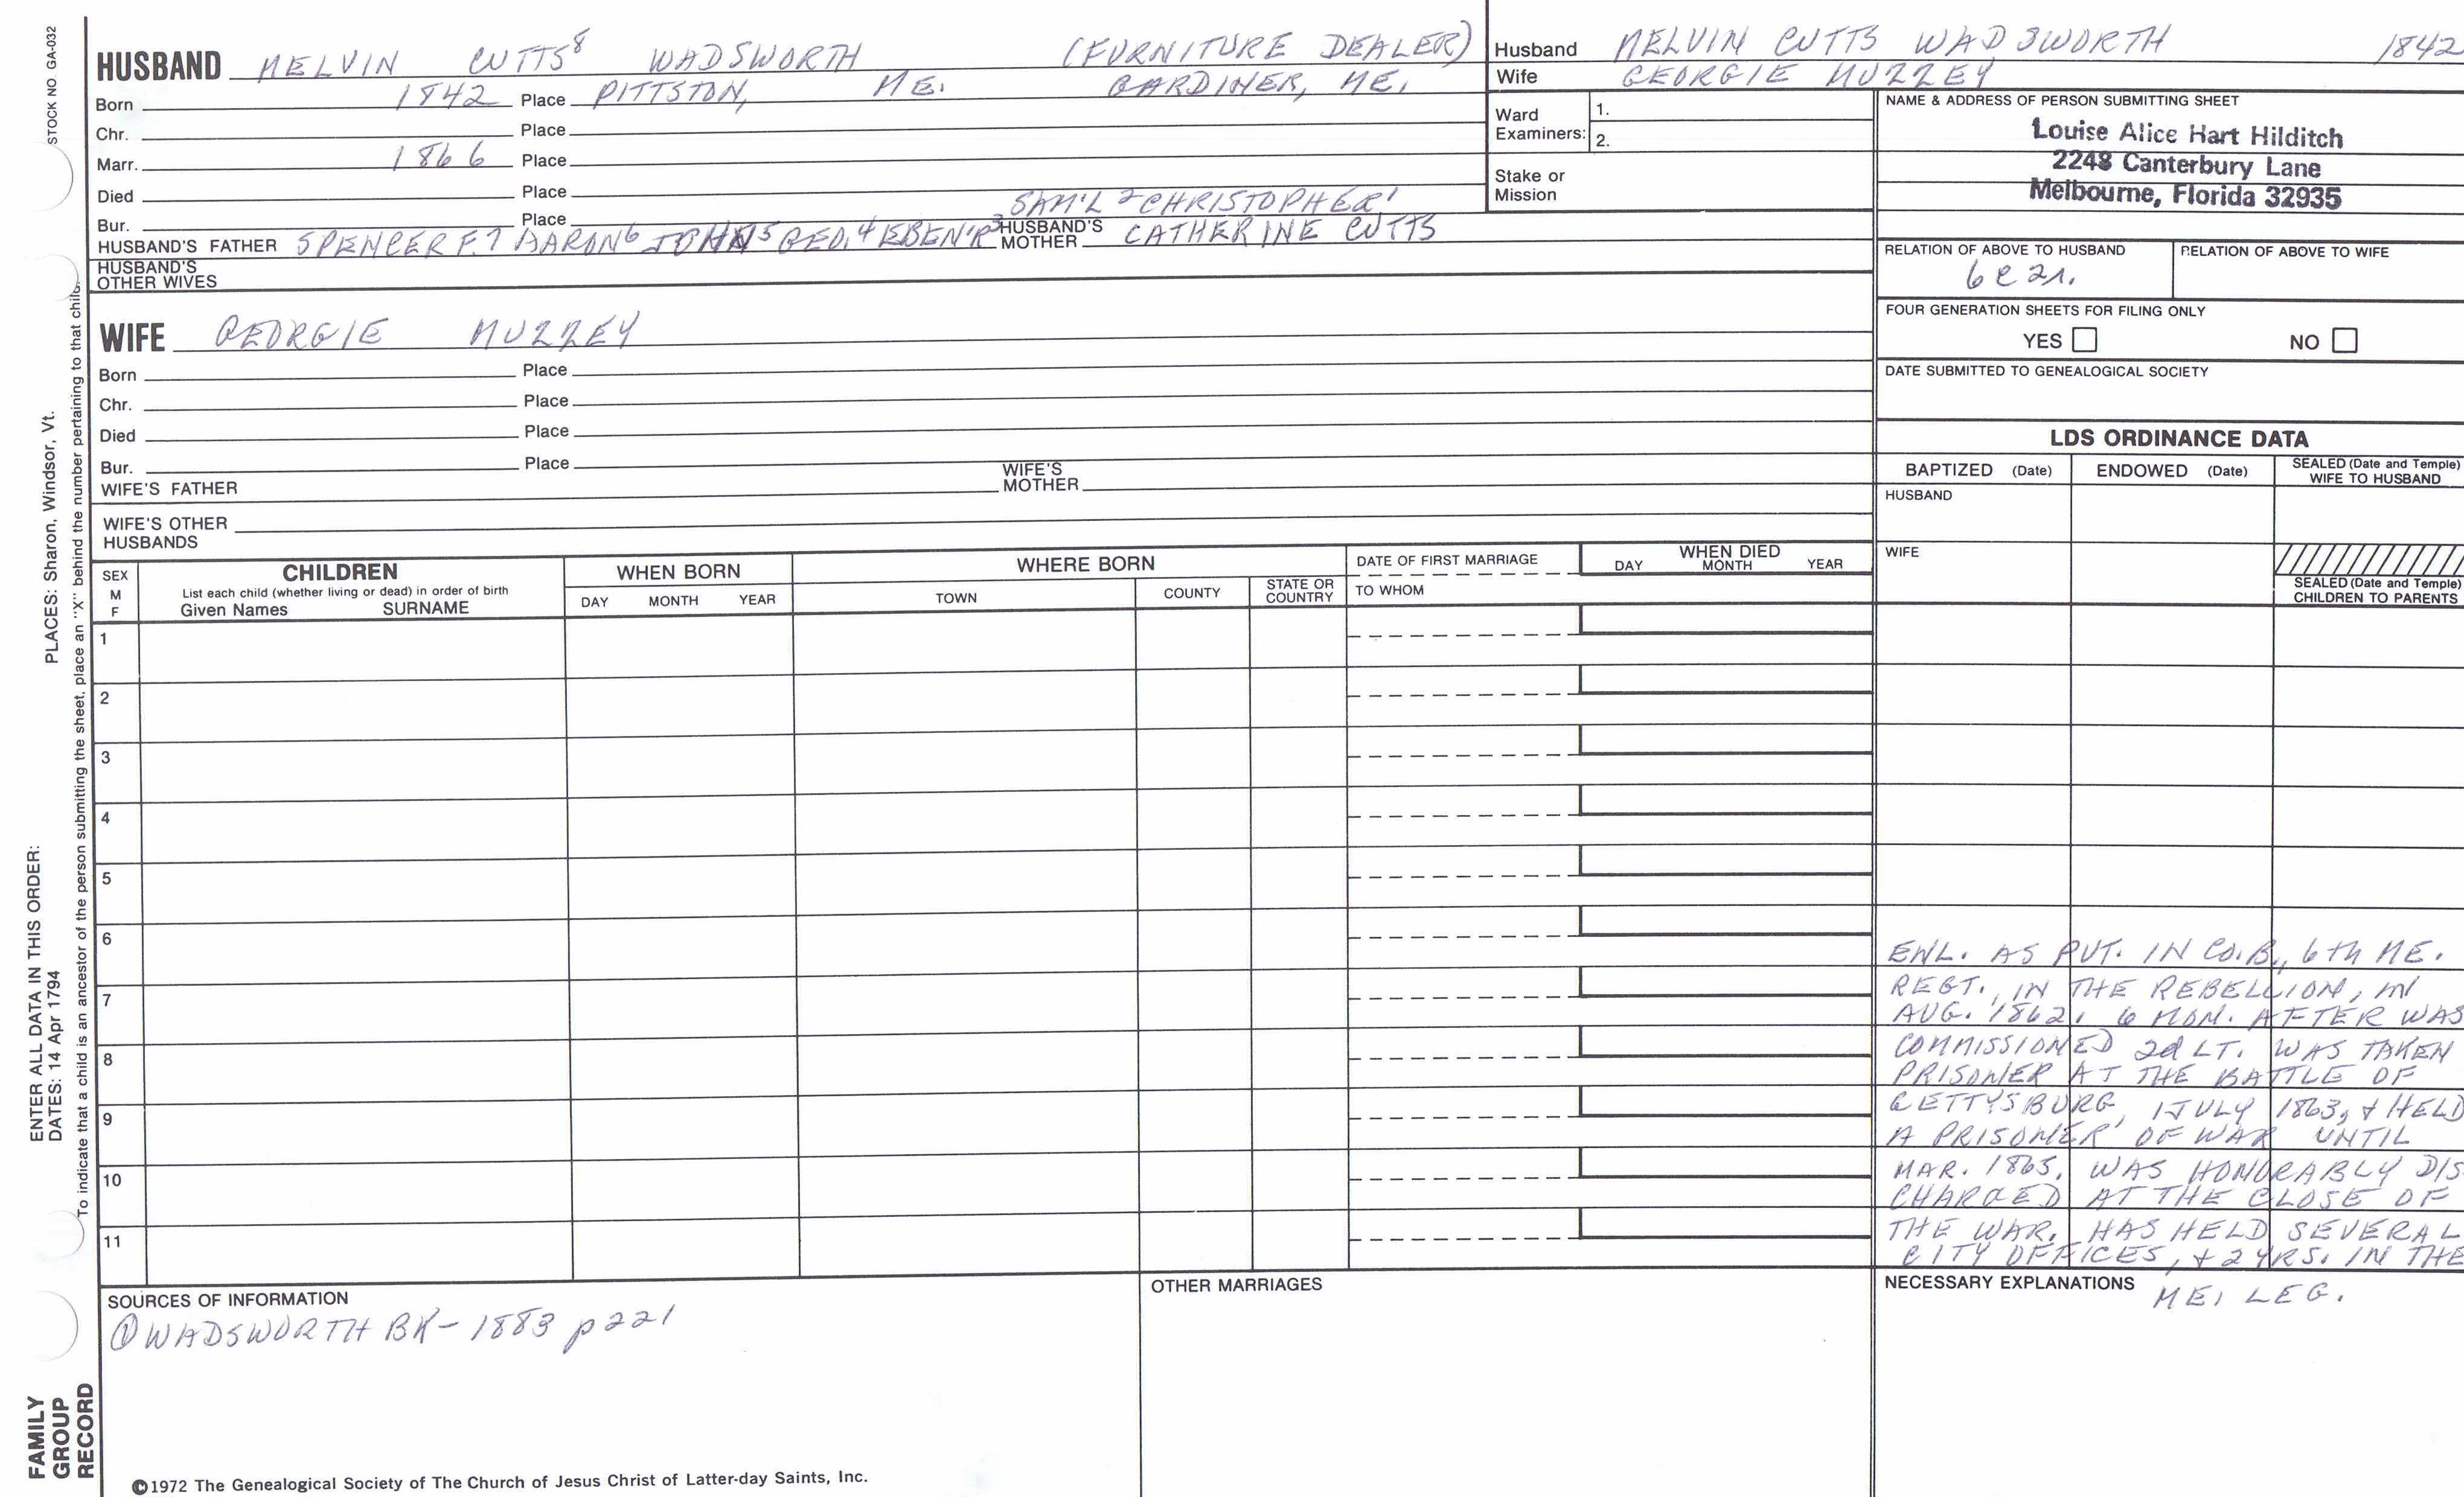 STOCK NO. GA-032
PLACES: Sharon, Windsor, Vt.
ENTER ALL DATA IN THIS ORDER:
DATES: 14 Apr 1794
To indicate that a child is an ancestor of the person submitting the sheet, place an "X" behind the number pertaining to that child.
FAMILY
GROUP
RECORD
HUSBAND MELVIN CUTTS⁸ WADSWORTH (FURNITURE DEALER)
Born 1842 Place PITTSTON, ME. GARDINER, ME.
Chr. Place
Marr. 1866 Place
Died Place
Bur. Place SAM'L² CHRISTOPHER¹
HUSBAND'S FATHER SPENCER F.⁷ AARON⁶ JOHN⁵ GEO.⁴ EBEN'R³ HUSBAND'S MOTHER CATHERINE CUTTS
HUSBAND'S
OTHER WIVES
WIFE GEORGIE MUZZEY
Born Place
Chr. Place
Died Place
Bur. Place
WIFE'S FATHER WIFE'S MOTHER
WIFE'S OTHER
HUSBANDS
Husband MELVIN CUTTS WADSWORTH 1842
Wife GEORGIE MUZZEY
Ward
Examiners:
1.
2.
Stake or
Mission
NAME & ADDRESS OF PERSON SUBMITTING SHEET
Louise Alice Hart Hilditch
2248 Canterbury Lane
Melbourne, Florida 32935
RELATION OF ABOVE TO HUSBAND RELATION OF ABOVE TO WIFE
6C2r.
FOUR GENERATION SHEETS FOR FILING ONLY
YES NO
DATE SUBMITTED TO GENEALOGICAL SOCIETY
LDS ORDINANCE DATA
BAPTIZED (Date) ENDOWED (Date) SEALED (Date and Temple)
WIFE TO HUSBAND
HUSBAND
WIFE
SEALED (Date and Temple)
CHILDREN TO PARENTS
SEX
M
F
CHILDREN
List each child (whether living or dead) in order of birth
Given Names SURNAME
WHEN BORN
DAY MONTH YEAR
WHERE BORN
TOWN COUNTY STATE OR
COUNTRY
DATE OF FIRST MARRIAGE
TO WHOM
WHEN DIED
DAY MONTH YEAR
1
2
3
4
5
6
7
8
9
10
11
ENL. AS PVT. IN CO. B., 6th ME.
REGT., IN THE REBELLION, IN
AUG. 1862. 6 MON. AFTER WAS
COMMISSIONED 2d LT. WAS TAKEN
PRISONER AT THE BATTLE OF
GETTYSBURG, 1 JULY 1863, & HELD
A PRISONER OF WAR UNTIL
MAR. 1865. WAS HONORABLY DIS
CHARGED AT THE CLOSE OF
THE WAR. HAS HELD SEVERAL
CITY OFFICES, & 2 YRS. IN THE
NECESSARY EXPLANATIONS ME. LEG.
SOURCES OF INFORMATION
① WADSWORTH BK - 1883 p221
OTHER MARRIAGES
©1972 The Genealogical Society of The Church of Jesus Christ of Latter-day Saints, Inc.